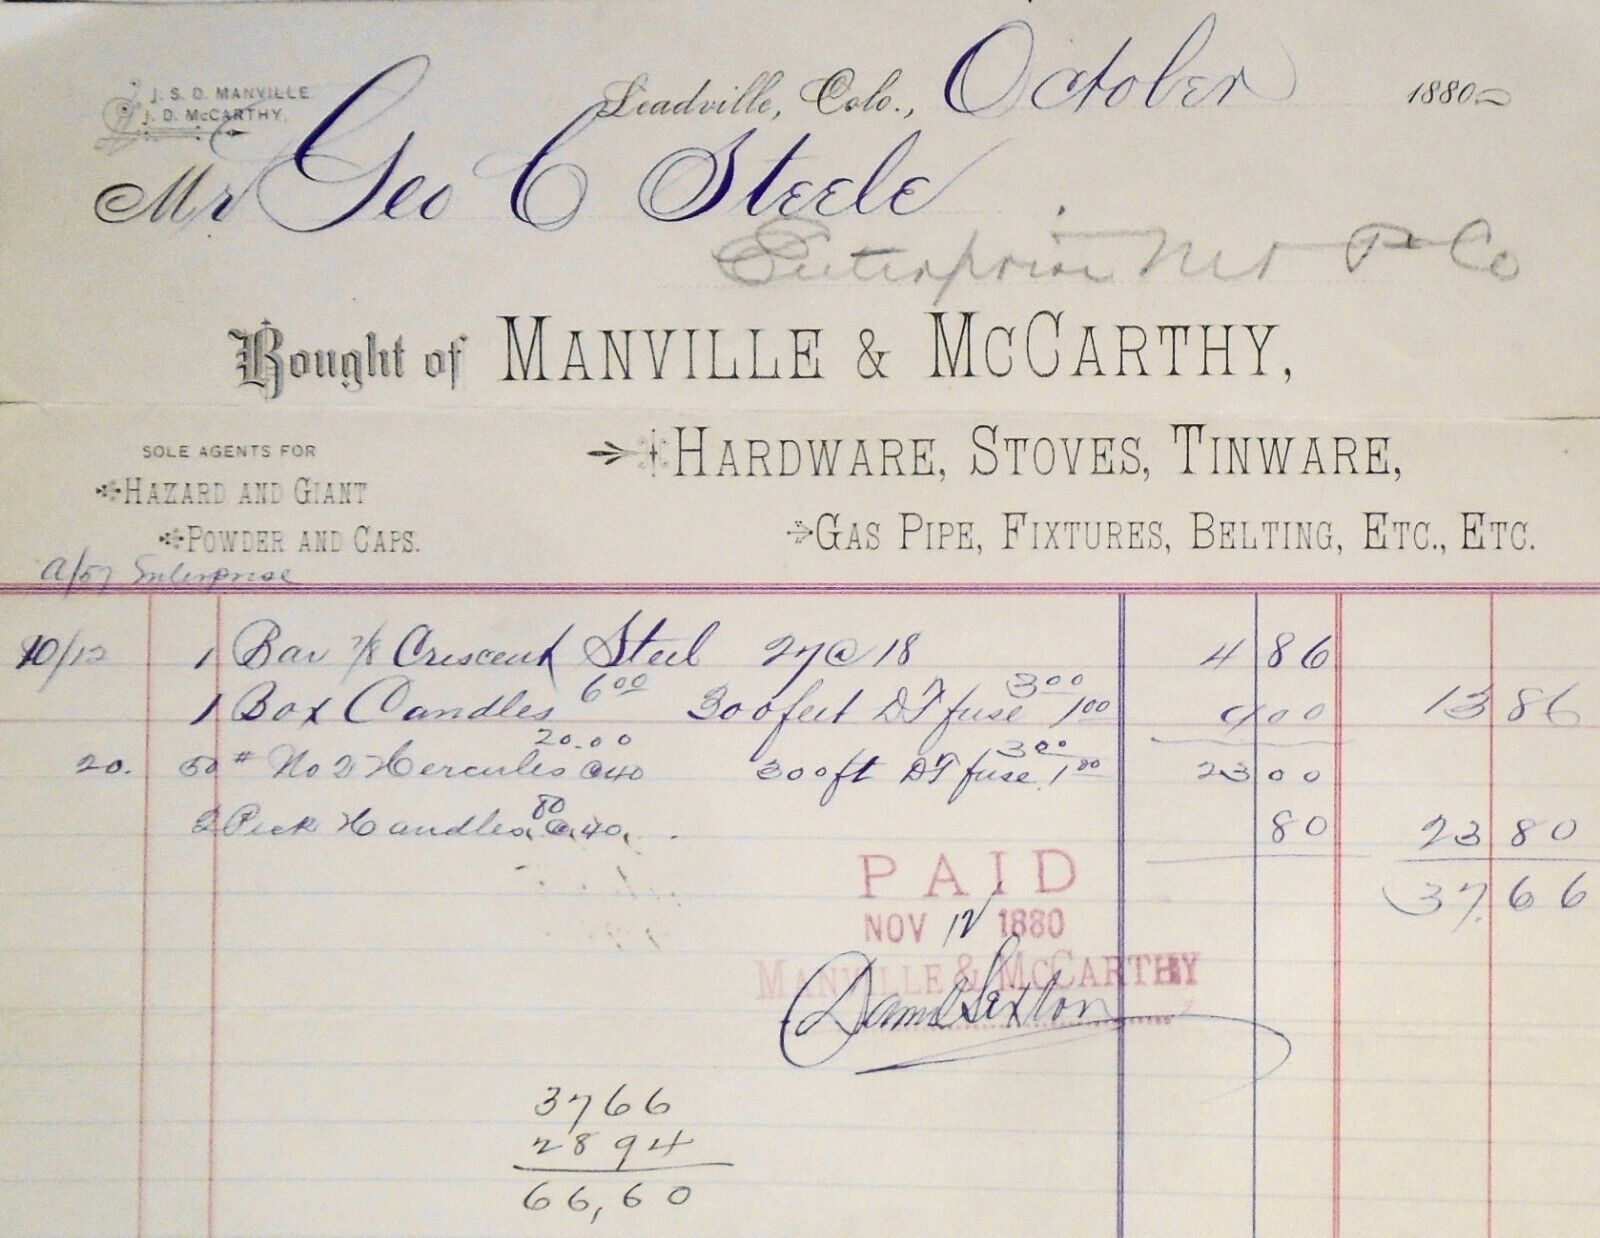 J. S. D. MANVILLE.
J. D. McCARTHY.
Leadville, Colo., October 1880
Mr Geo C Steele
Enterprise Co
Bought of MANVILLE & McCARTHY,
SOLE AGENTS FOR
HAZARD AND GIANT
POWDER AND CAPS.
HARDWARE, STOVES, TINWARE,
GAS PIPE, FIXTURES, BELTING, ETC., ETC.
Enterprise
10/12 1 Bar 7/8 Crescent Steel 27 @ 18 4 86
1 Box Candles 6 00 300 feet DT fuse 3 00 1 00 9 00 13 86
20. 50 # No 2 Hercules @ 40 20.00 300 ft DT fuse 3 00 1 00 23 00
2 Pick Handles @ 40, 80 80 23 80
37.66
PAID
NOV 12 1880
MANVILLE & McCARTHY
Sexton
3766
2894
66,60